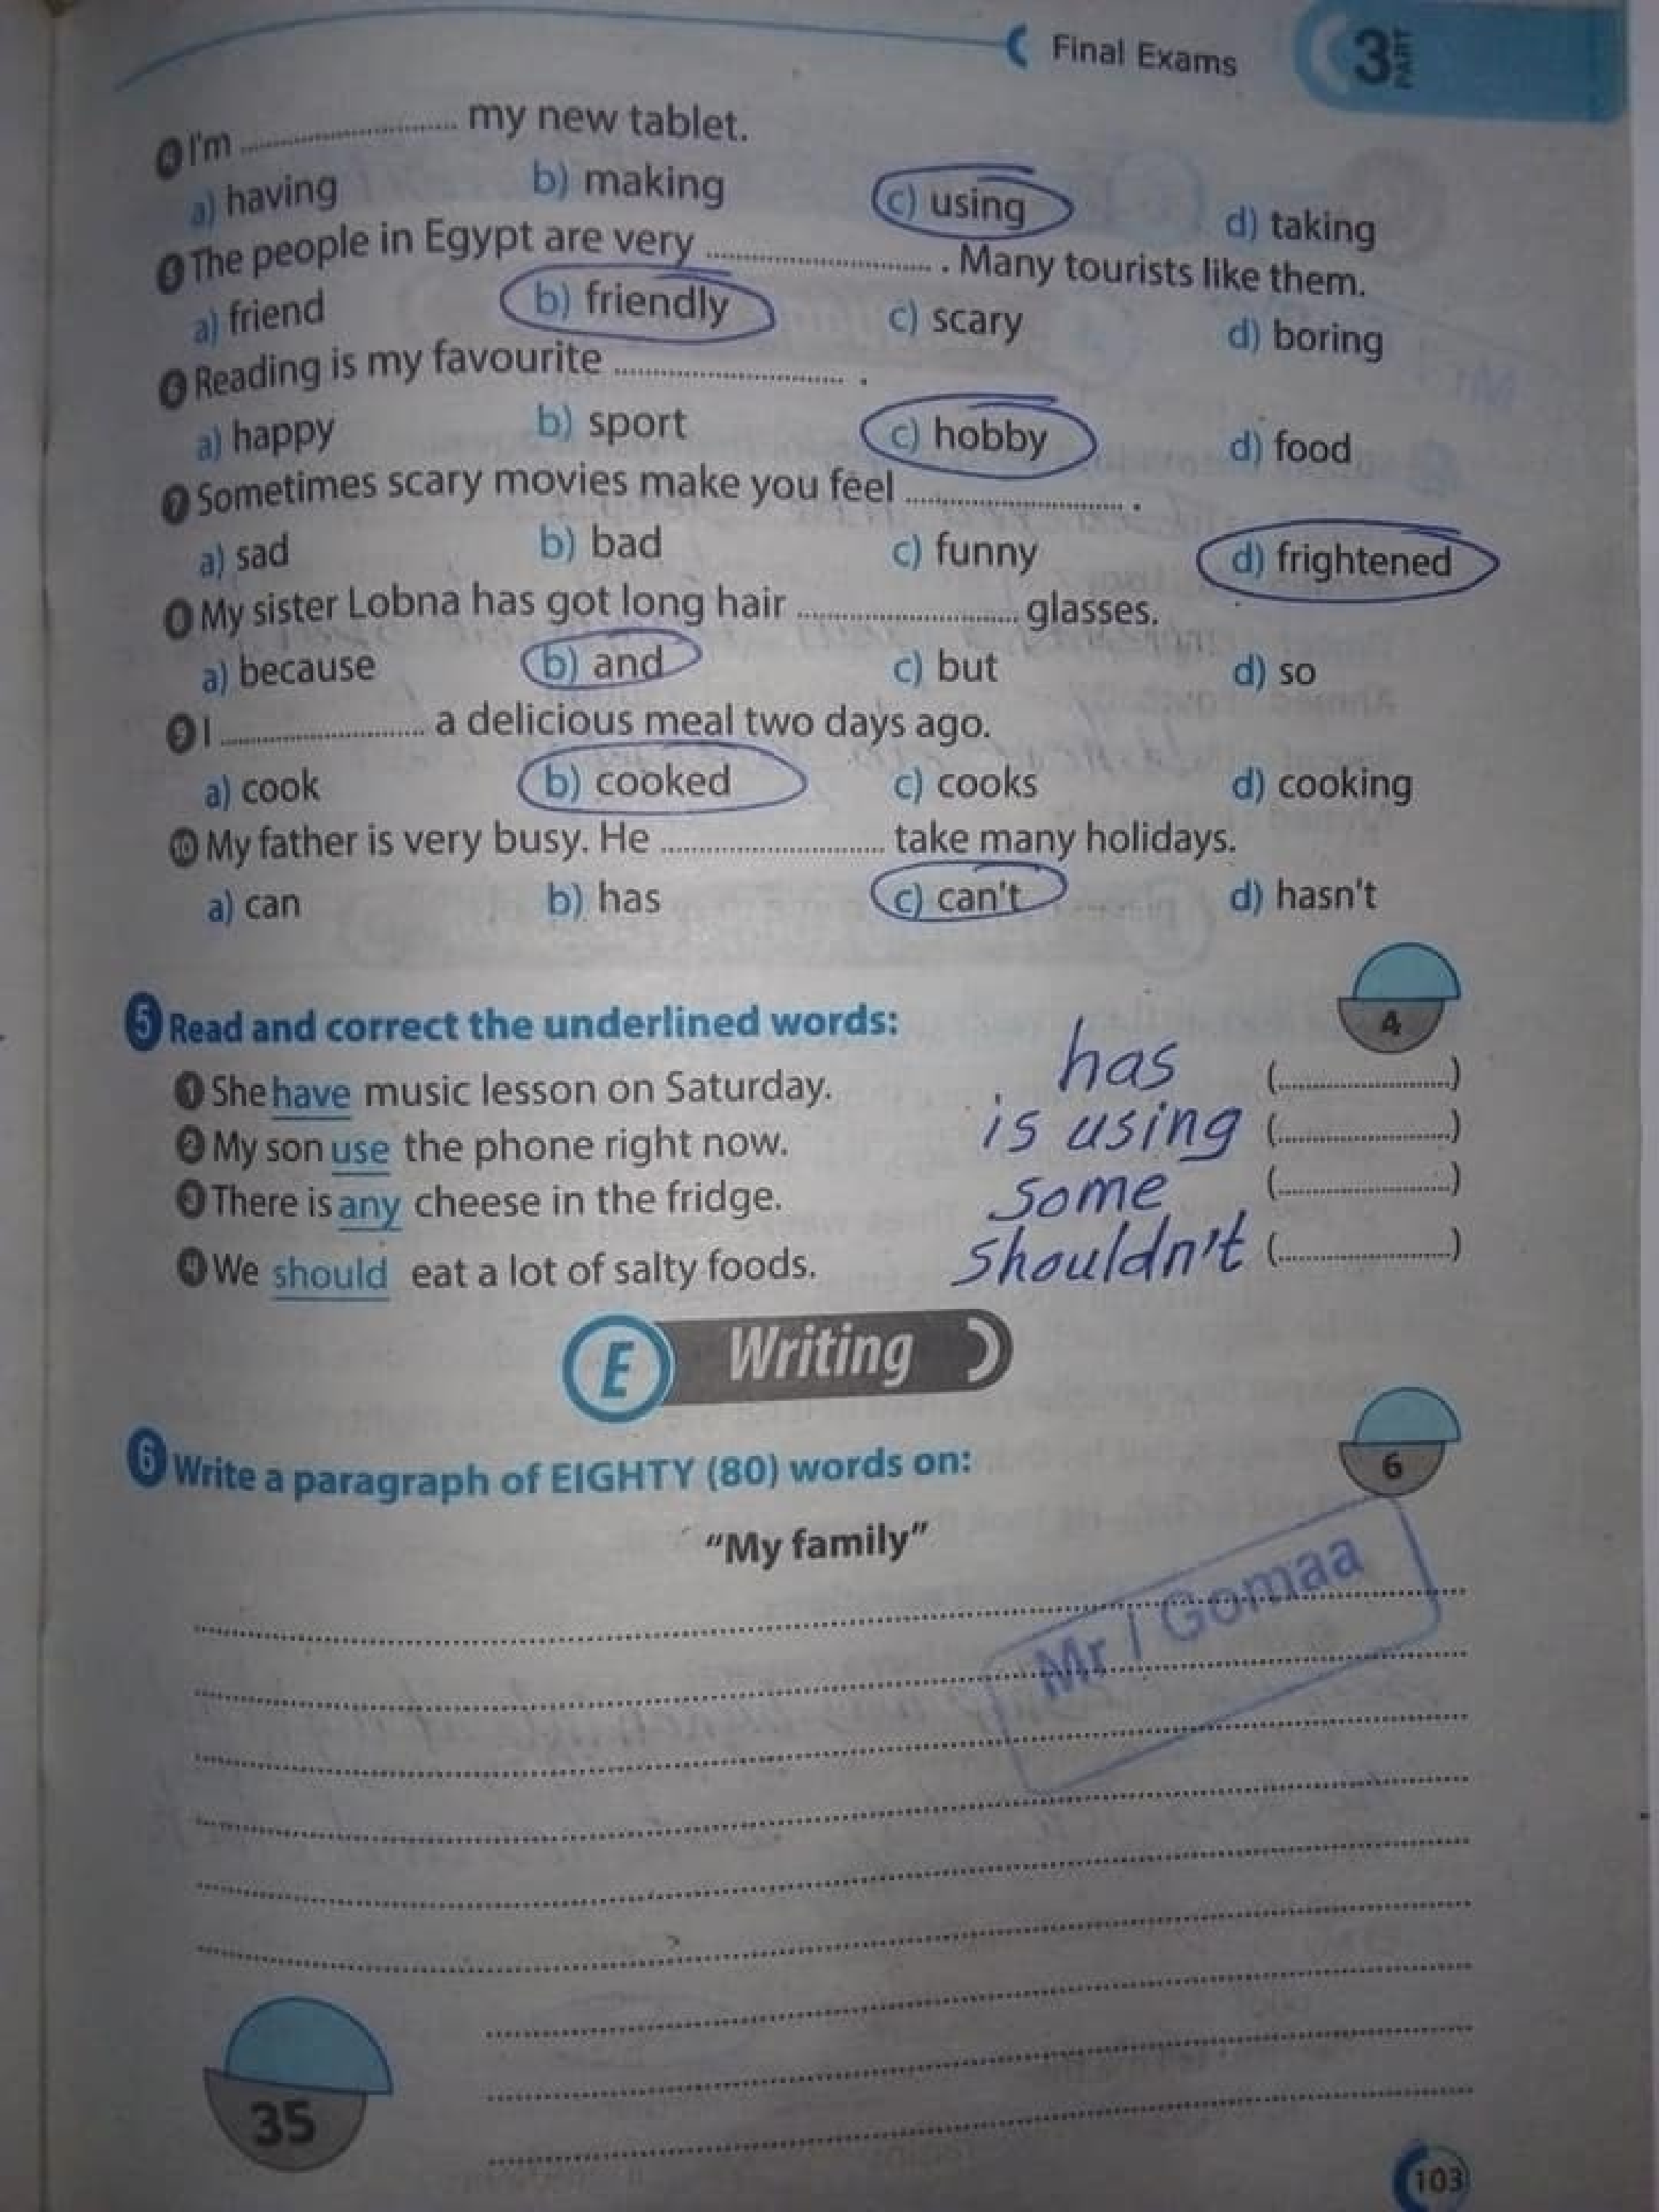 Final Exams
3 PART
4 I'm .................... my new tablet.
a) having b) making c) using d) taking
5 The people in Egypt are very .................... . Many tourists like them.
a) friend b) friendly c) scary d) boring
6 Reading is my favourite .................... .
a) happy b) sport c) hobby d) food
7 Sometimes scary movies make you feel .................... .
a) sad b) bad c) funny d) frightened
8 My sister Lobna has got long hair .................... glasses.
a) because b) and c) but d) so
9 I .................... a delicious meal two days ago.
a) cook b) cooked c) cooks d) cooking
10 My father is very busy. He .................... take many holidays.
a) can b) has c) can't d) hasn't
4
5 Read and correct the underlined words:
1 She have music lesson on Saturday. has (....................)
2 My son use the phone right now. is using (....................)
3 There is any cheese in the fridge. some (....................)
4 We should eat a lot of salty foods. shouldn't (....................)
E Writing
6
6 Write a paragraph of EIGHTY (80) words on:
"My family"
Mr / Gomaa
35
103